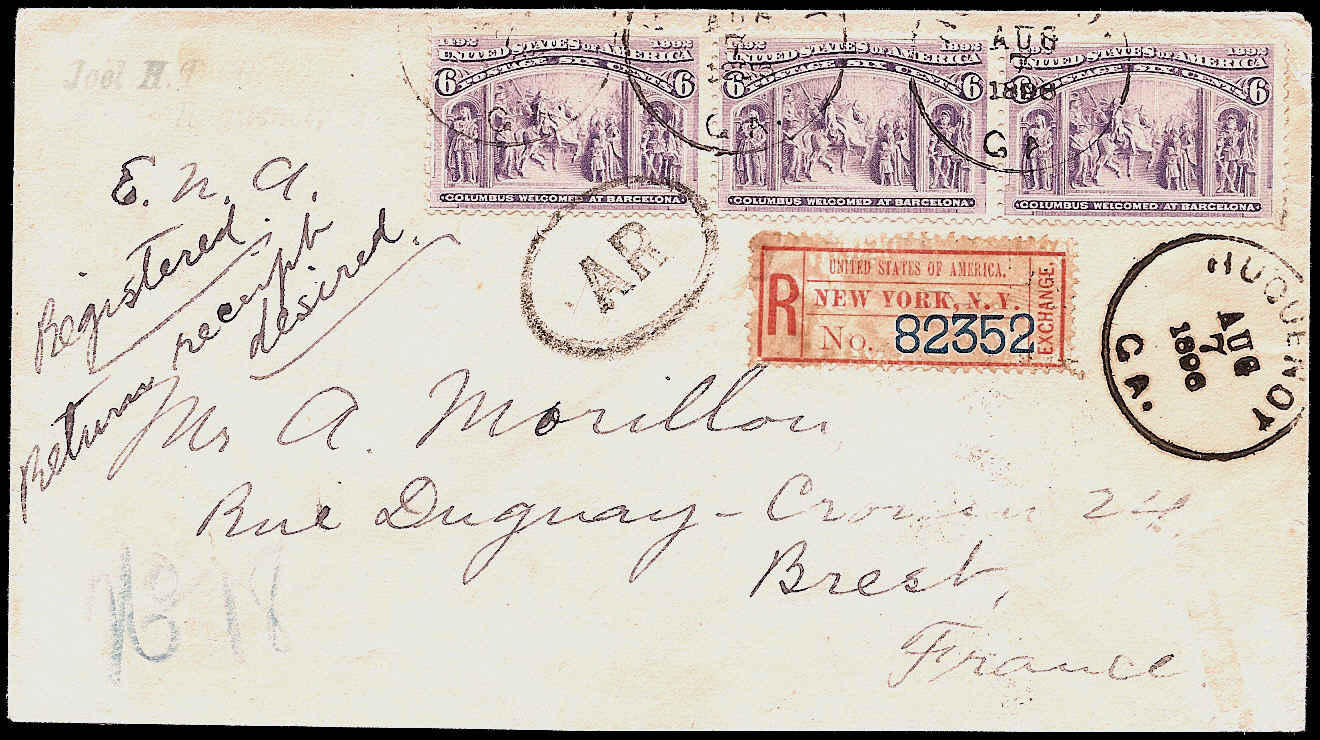 Joel H.
1492 1892
UNITED STATES OF AMERICA
POSTAGE SIX CENTS
6 6
COLUMBUS WELCOMED AT BARCELONA
1492 1892
UNITED STATES OF AMERICA
POSTAGE SIX CENTS
6 6
COLUMBUS WELCOMED AT BARCELONA
1892
UNITED STATES OF AMERICA
POSTAGE SIX CENTS
6
COLUMBUS WELCOMED AT BARCELONA
GA.
AUG
7
GA.
AUG
7
1896
GA
E. N. A.
Registered
Return receipt
desired.
AR
R
UNITED STATES OF AMERICA.
NEW YORK, N.Y.
No. 82352
EXCHANGE.
HUGUENOT
AUG
7
1896
GA.
Mr A. Morillon
Rue Duguay-
24
Brest,
France
No 18